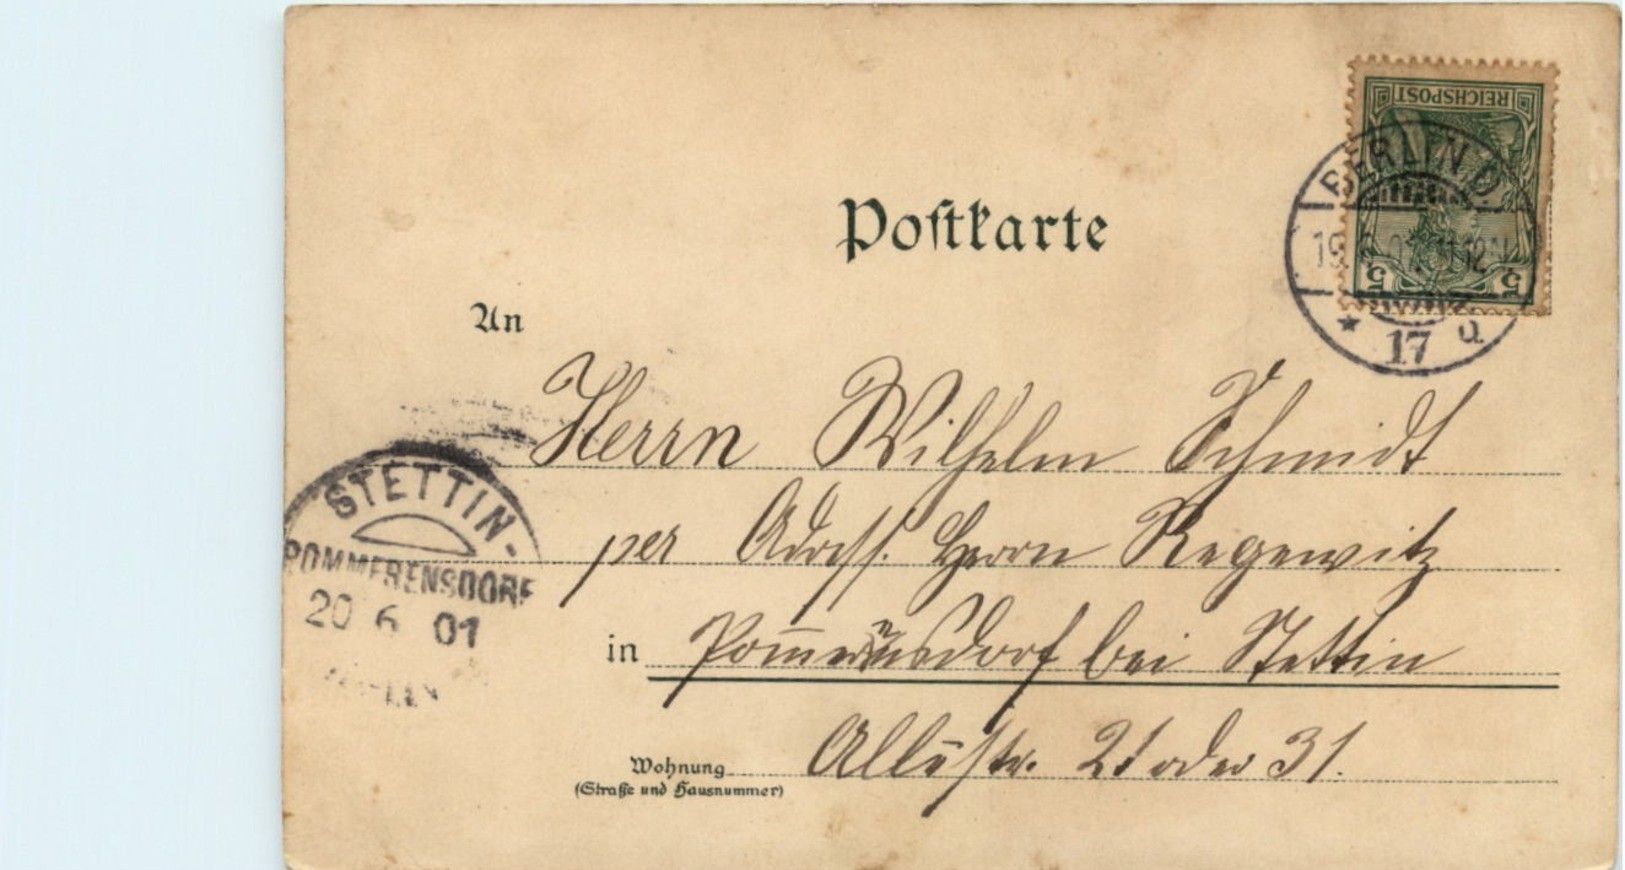 REICHSPOST
5 5
BERLIN O.
19. 11-12
17 a
Postkarte
An
Herrn Wilhelm Schmidt
per Adress. Herrn Regewitz
in Pommerensdorf bei Stettin
Wohnung
(Straße und Hausnummer)
21 oder 31.
STETTIN-
POMMERENSDORF
20 6 01